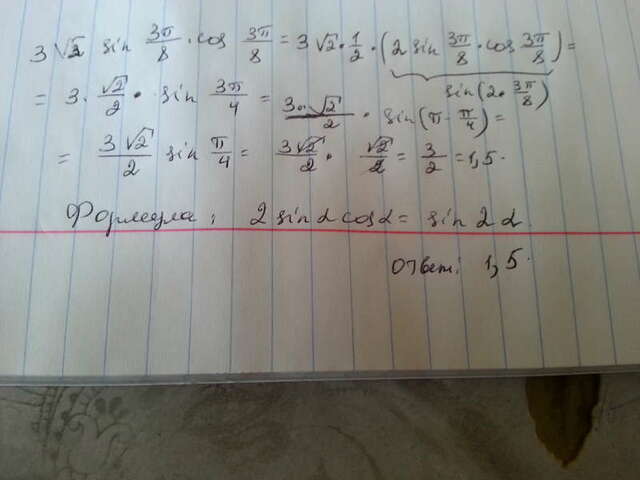 3√2 sin 3π/8 · cos 3π/8 = 3√2 · 1/2 · (2 sin 3π/8 · cos 3π/8) =
sin(2 · 3π/8)
= 3 · √2/2 · sin 3π/4 = 3·√2/2 · sin(π - π/4) =
= 3√2/2 sin π/4 = 3√2/2 · √2/2 = 3/2 = 1,5.
Формула: 2 sin α cos α = sin 2α
Ответ: 1,5.